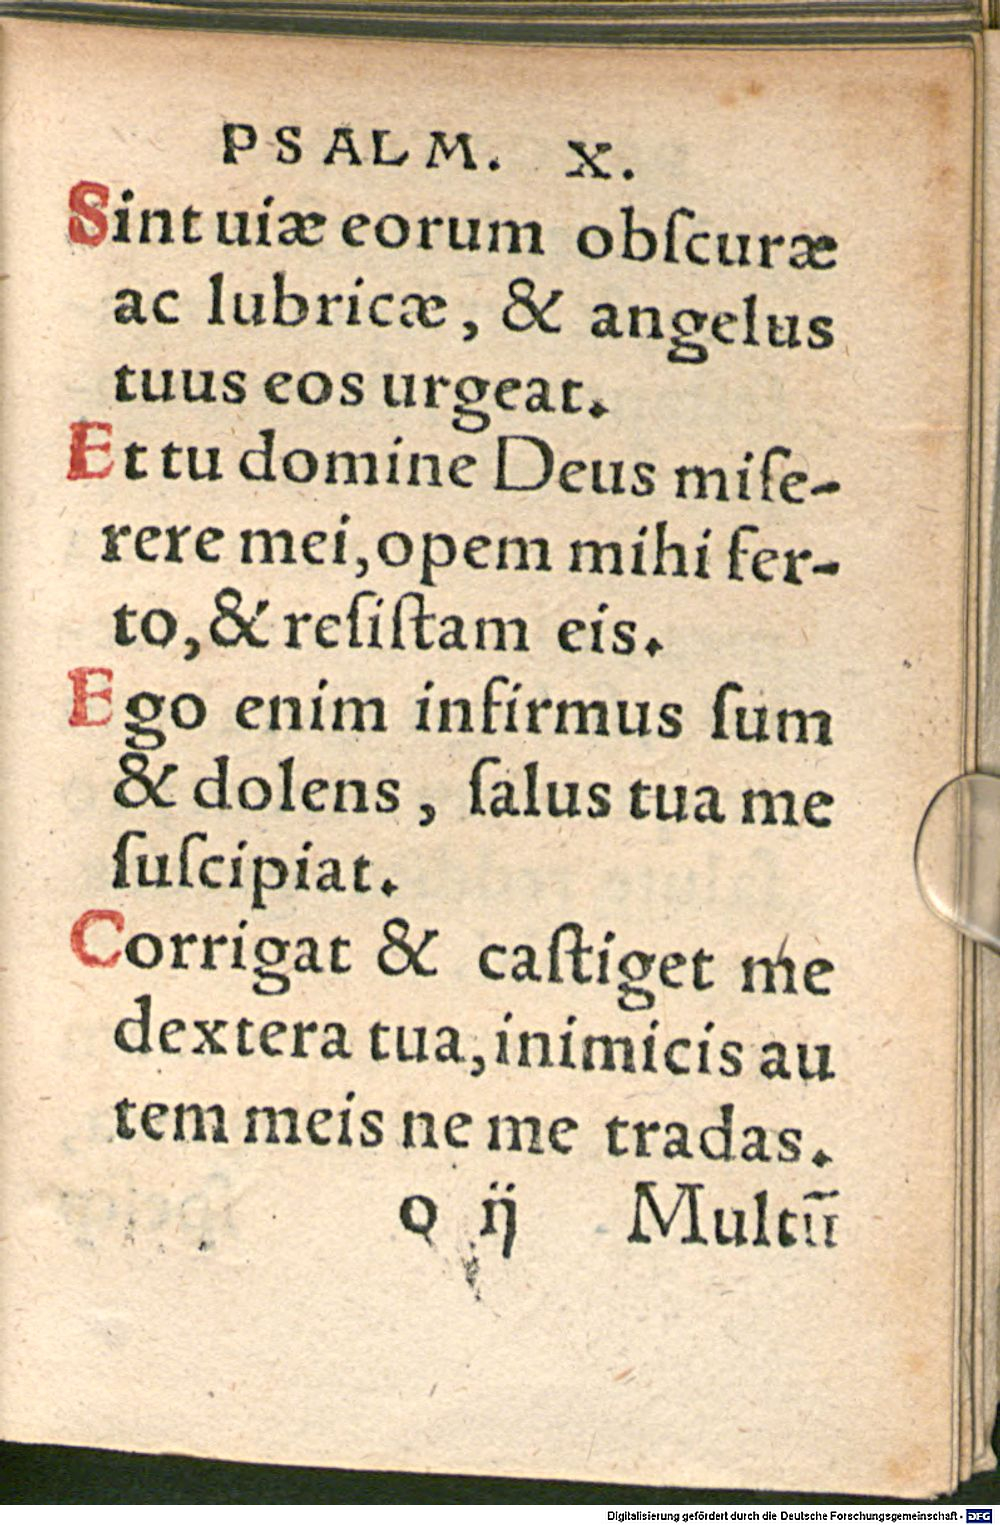 PSALM. X.
Sint uiæ eorum obſcuræ
ac lubricæ, & angelus
tuus eos urgeat.
Et tu domine Deus miſe-
rere mei, opem mihi fer-
to, & reſiſtam eis.
Ego enim infirmus ſum
& dolens, ſalus tua me
ſuſcipiat.
Corrigat & caſtiget me
dextera tua, inimicis au
tem meis ne me tradas.
Q ij Multū
Digitalisierung gefördert durch die Deutsche Forschungsgemeinschaft - DFG